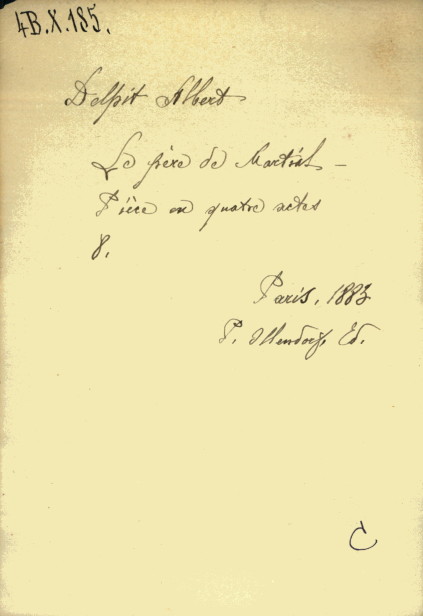 4B.X.185.
Delpit Albert
Le père de Martial –
Pièce en quatre actes
8.
Paris, 1883
P. Ollendorf, Ed.
C